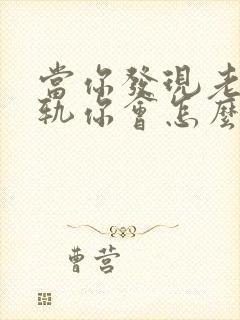 當你發現老
軌你會怎麼
曹营